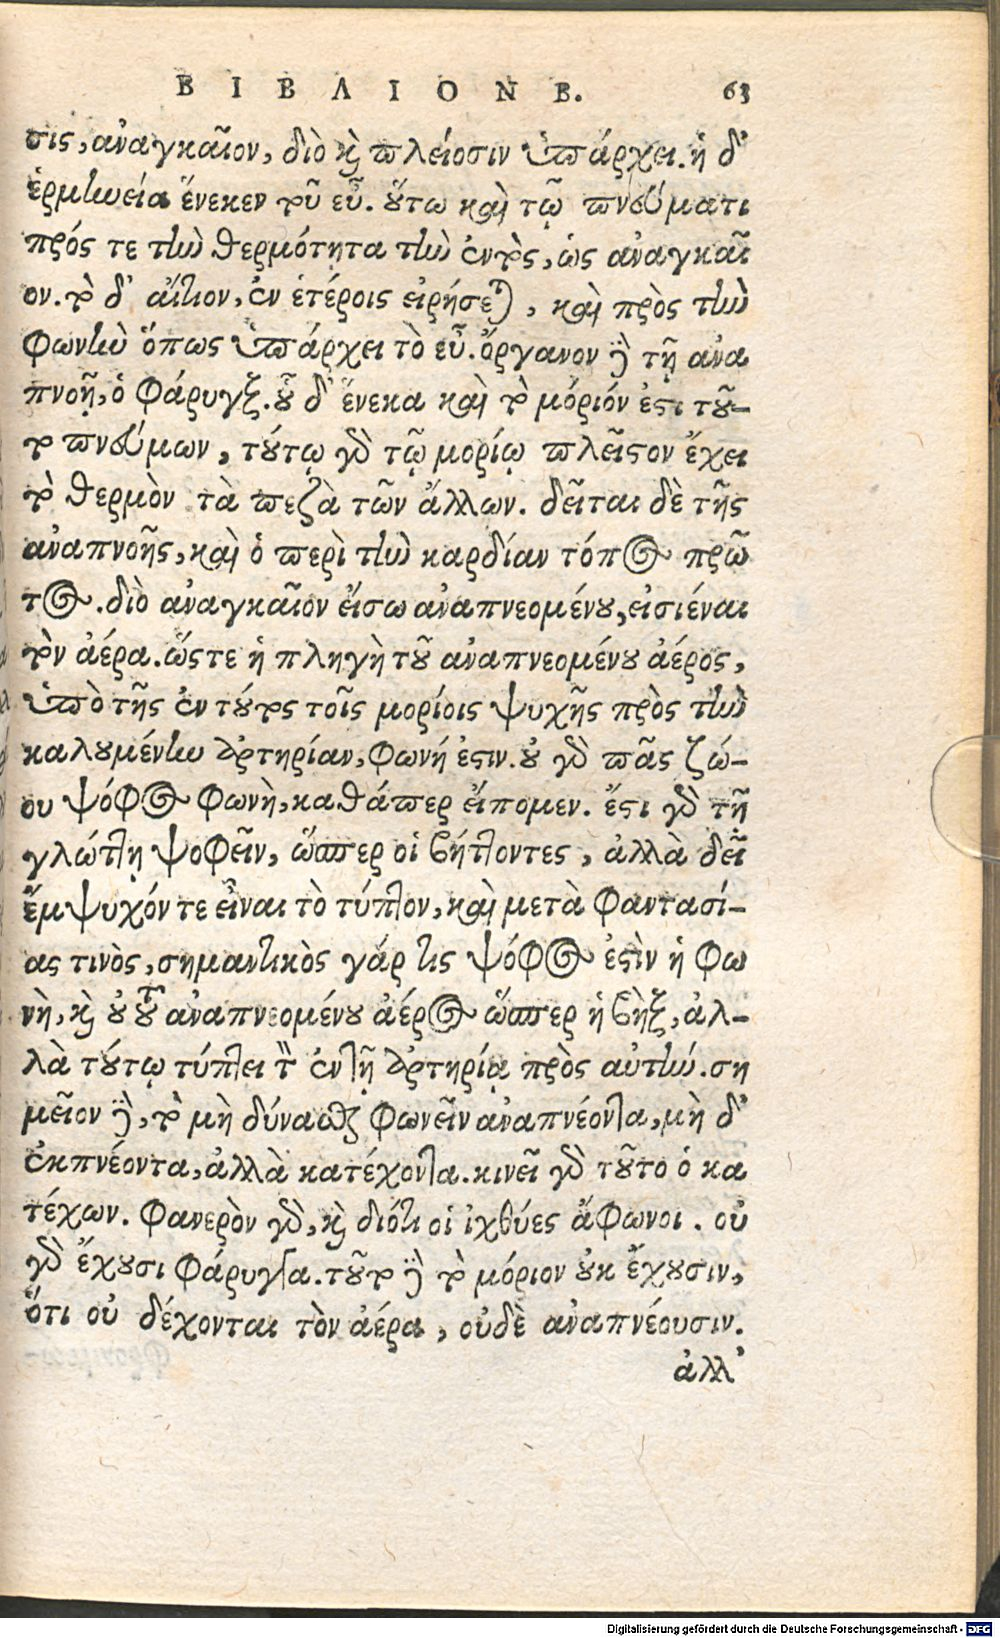 ΒΙΒΛΙΟΝ Β. 63
σις, ἀναγκαῖον, διὸ καὶ πλείοσιν ὑπάρχει. ἡ δ'
ἑρμηνεία ἕνεκεν τοῦ εὖ. οὕτω καὶ τῷ πνεύματι
πρός τε τὴν θερμότητα τὴν ἐντὸς, ὡς ἀναγκαῖ
ον. τὸ δ' αἴτιον, ἐν ἑτέροις εἰρήσεται, καὶ πρὸς τὴν
φωνὴν ὅπως ὑπάρχει τὸ εὖ. ὄργανον δὲ τῇ ἀνα
πνοῇ, ὁ φάρυγξ. οὗ δ' ἕνεκα καὶ τὸ μόριόν ἐστι τοῦ-
το πνεύμων, τούτῳ γὰρ τῷ μορίῳ πλεῖστον ἔχει
τὸ θερμὸν τὰ πεζὰ τῶν ἄλλων. δεῖται δὲ τῆς
ἀναπνοῆς, καὶ ὁ περὶ τὴν καρδίαν τόπος πρῶ
τος. διὸ ἀναγκαῖον εἴσω ἀναπνεομένου, εἰσιέναι
τὸν ἀέρα. ὥστε ἡ πληγὴ τοῦ ἀναπνεομένου ἀέρος,
ὑπὸ τῆς ἐν τούτοις τοῖς μορίοις ψυχῆς πρὸς τὴν
καλουμένην ἀρτηρίαν, φωνή ἐστιν. οὐ γὰρ πᾶς ζώ-
ου ψόφος φωνὴ, καθάπερ εἴπομεν. ἔστι γὰρ τῇ
γλώττῃ ψοφεῖν, ὥσπερ οἱ βήττοντες, ἀλλὰ δεῖ
ἔμψυχόν τε εἶναι τὸ τύπτον, καὶ μετὰ φαντασί-
ας τινὸς, σημαντικὸς γάρ τις ψόφος ἐστὶν ἡ φω
νὴ, καὶ οὐ τοῦ ἀναπνεομένου ἀέρος ὥσπερ ἡ βὴξ, ἀλ-
λὰ τούτῳ τύπτει τὸν ἐν τῇ ἀρτηρίᾳ πρὸς αὐτήν. ση
μεῖον δὲ, τὸ μὴ δύνασθαι φωνεῖν ἀναπνέοντα, μὴ δ'
ἐκπνέοντα, ἀλλὰ κατέχοντα. κινεῖ γὰρ τοῦτο ὁ κα
τέχων. φανερὸν γὰρ, καὶ διότι οἱ ἰχθύες ἄφωνοι. οὐ
γὰρ ἔχουσι φάρυγγα. τοῦτο δὲ τὸ μόριον οὐκ ἔχουσιν,
ὅτι οὐ δέχονται τὸν ἀέρα, οὐδὲ ἀναπνέουσιν.
ἀλλ'
Digitalisierung gefördert durch die Deutsche Forschungsgemeinschaft - DFG